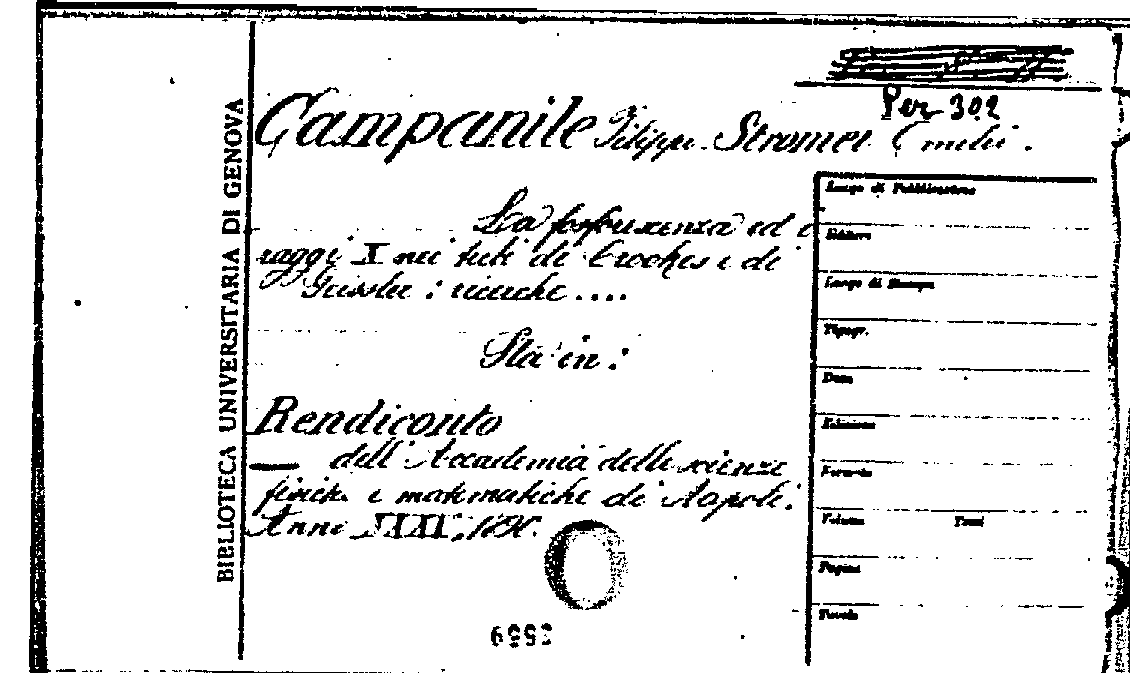 BIBLIOTECA UNIVERSITARIA DI GENOVA
Per 302
Campanile Filippo. Stromei Emilio.
La fosforescenza ed i
raggi X nei tubi di Crookes e di
Geissler: ricerche....
Sta in:
Rendiconto
— dell'Accademia delle scienze
fisiche e matematiche di Napoli.
Anno XXXV, 189
Luogo di Pubblicazione
Editore
Luogo di Stampa
Tipogr.
Data
Edizione
Formato
Volume Tomi
Pagine
Tavole